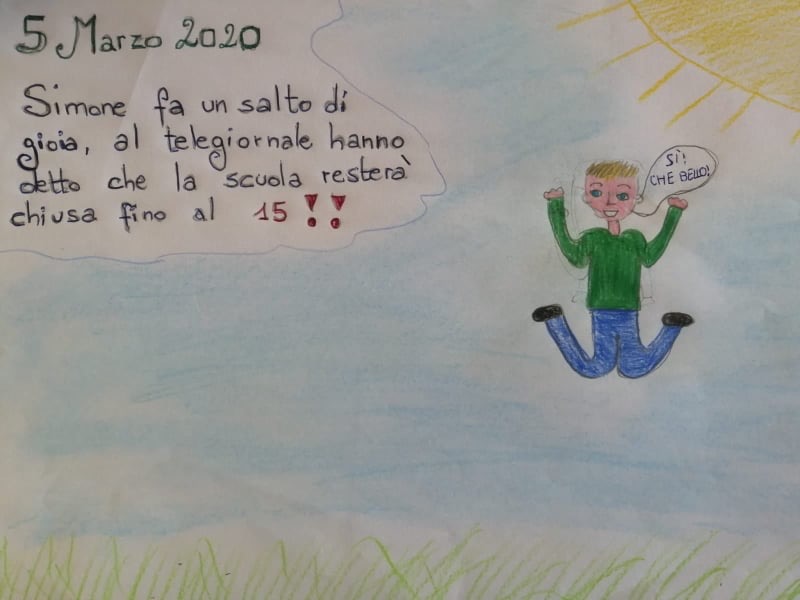 5 Marzo 2020
Simone fa un salto di
gioia, al telegiornale hanno
detto che la scuola resterà
chiusa fino al 15 !!
SÌ!
CHE BELLO!